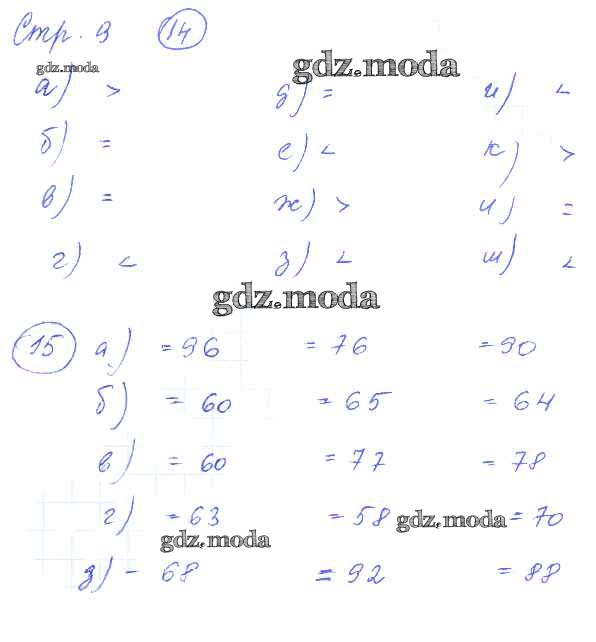 Стр. 9 14
gdz.moda gdz.moda
а) > д) = и) <
б) = е) < к) >
в) = ж) > л) =
г) < з) < м) <
gdz.moda
15 а) = 96 = 76 = 90
б) = 60 = 65 = 64
в) = 60 = 77 = 78
г) = 63 = 58 gdz.moda = 70
gdz.moda
д) = 68 = 92 = 88